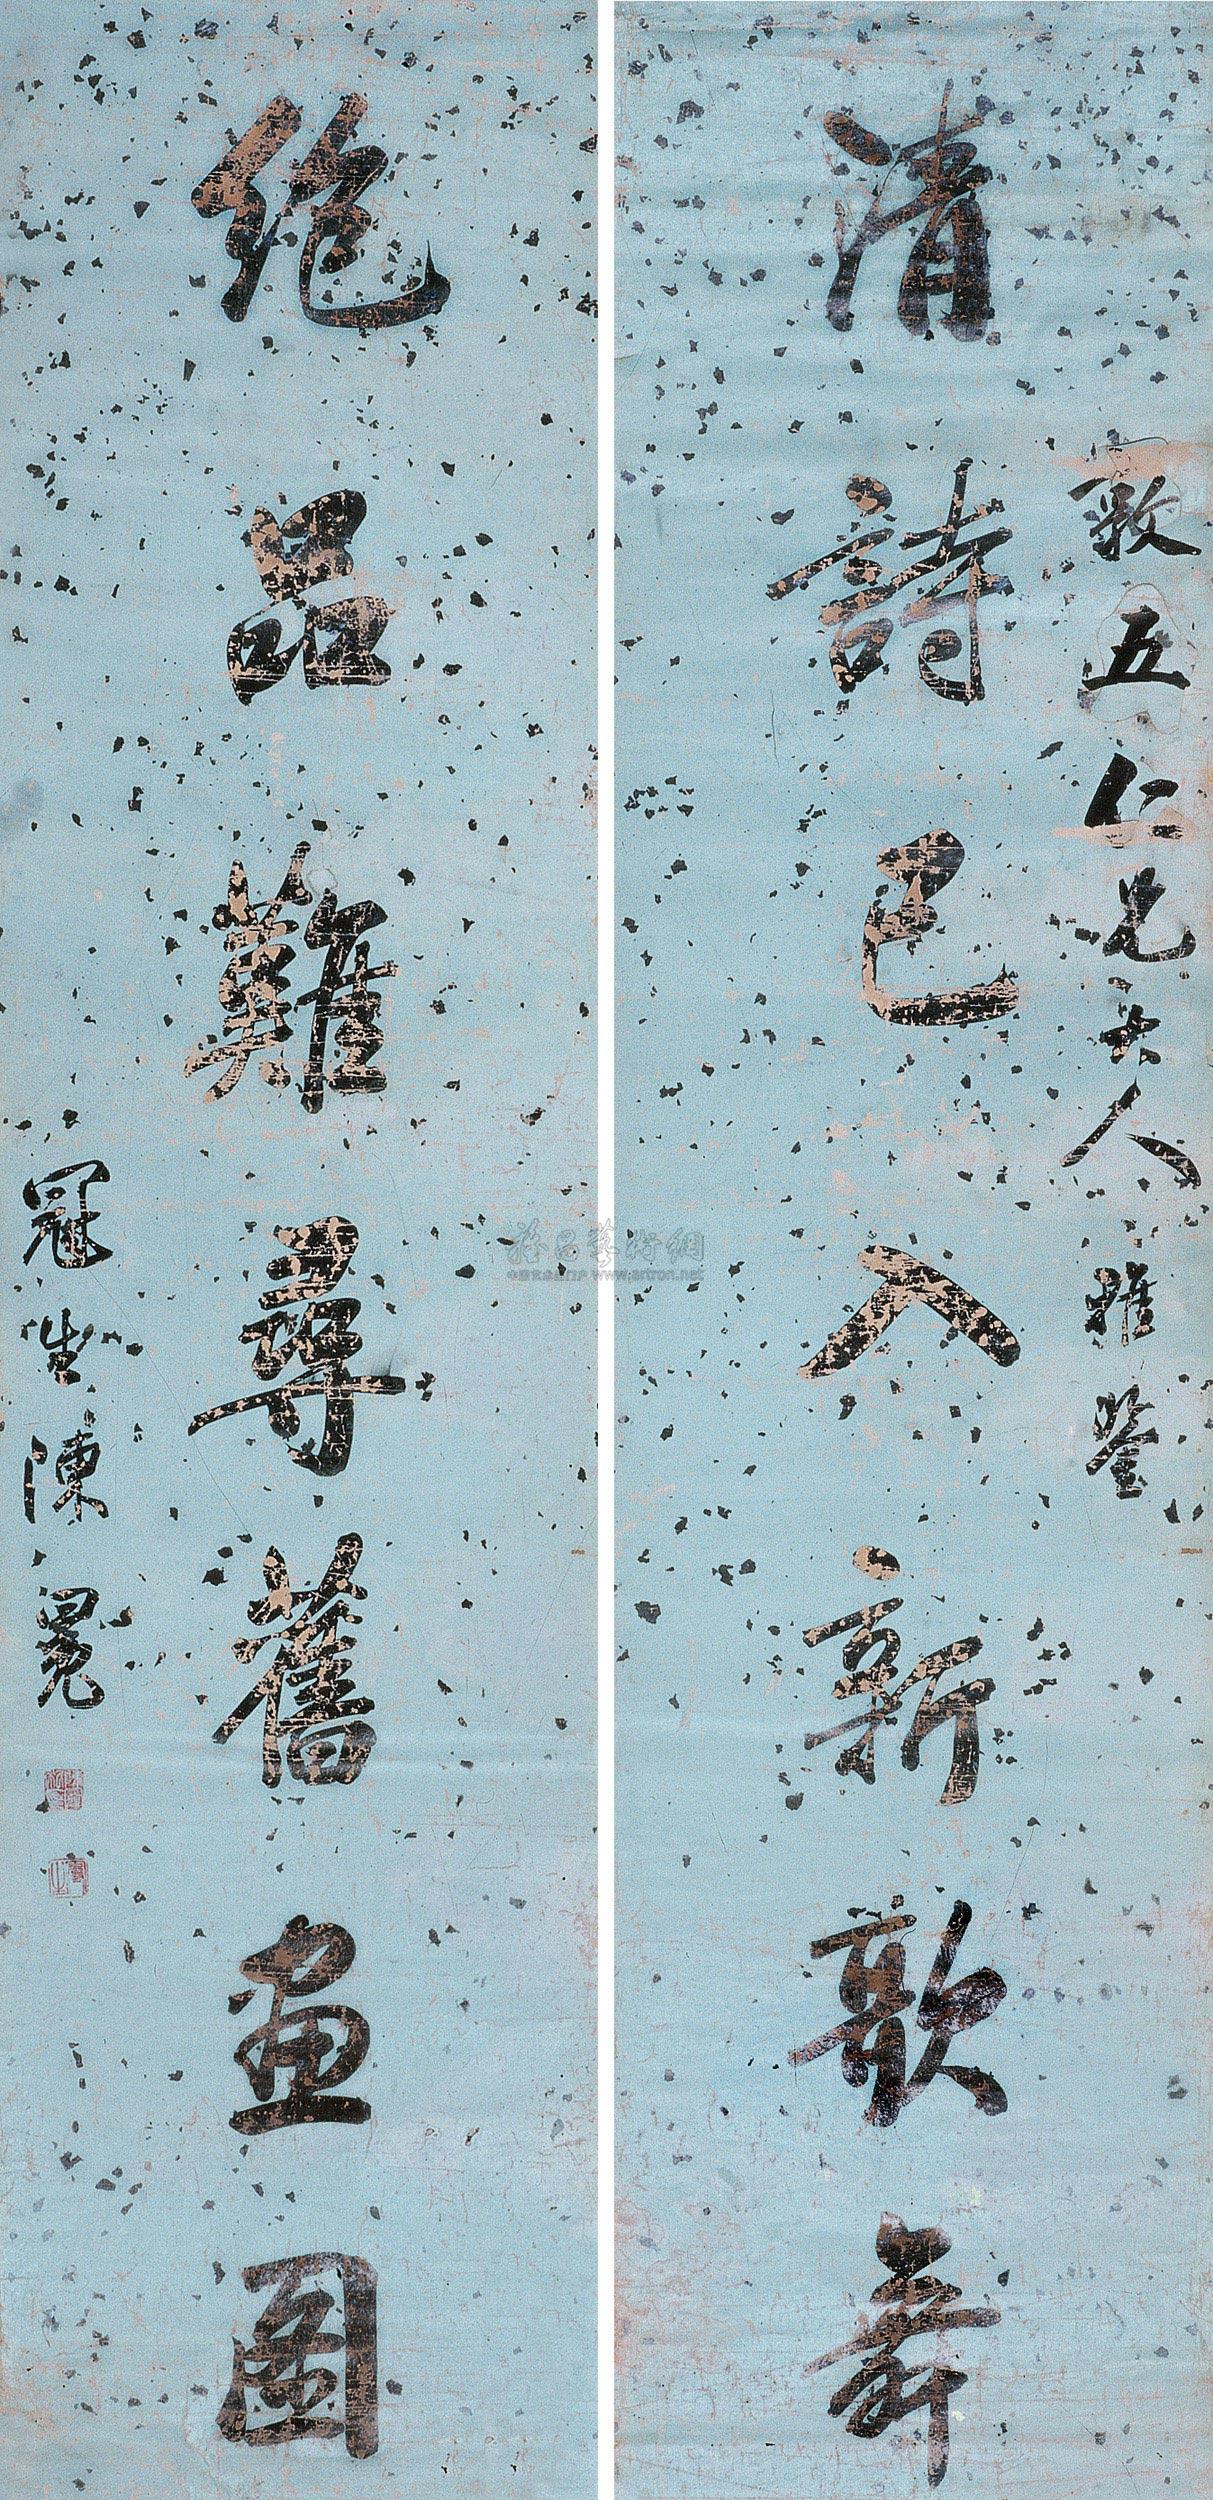 清詩已入新歌舞
敦五仁兄大人雅鑒
絕品難尋舊畫圖
冠生陳冕
雅昌藝術網
www.artron.net